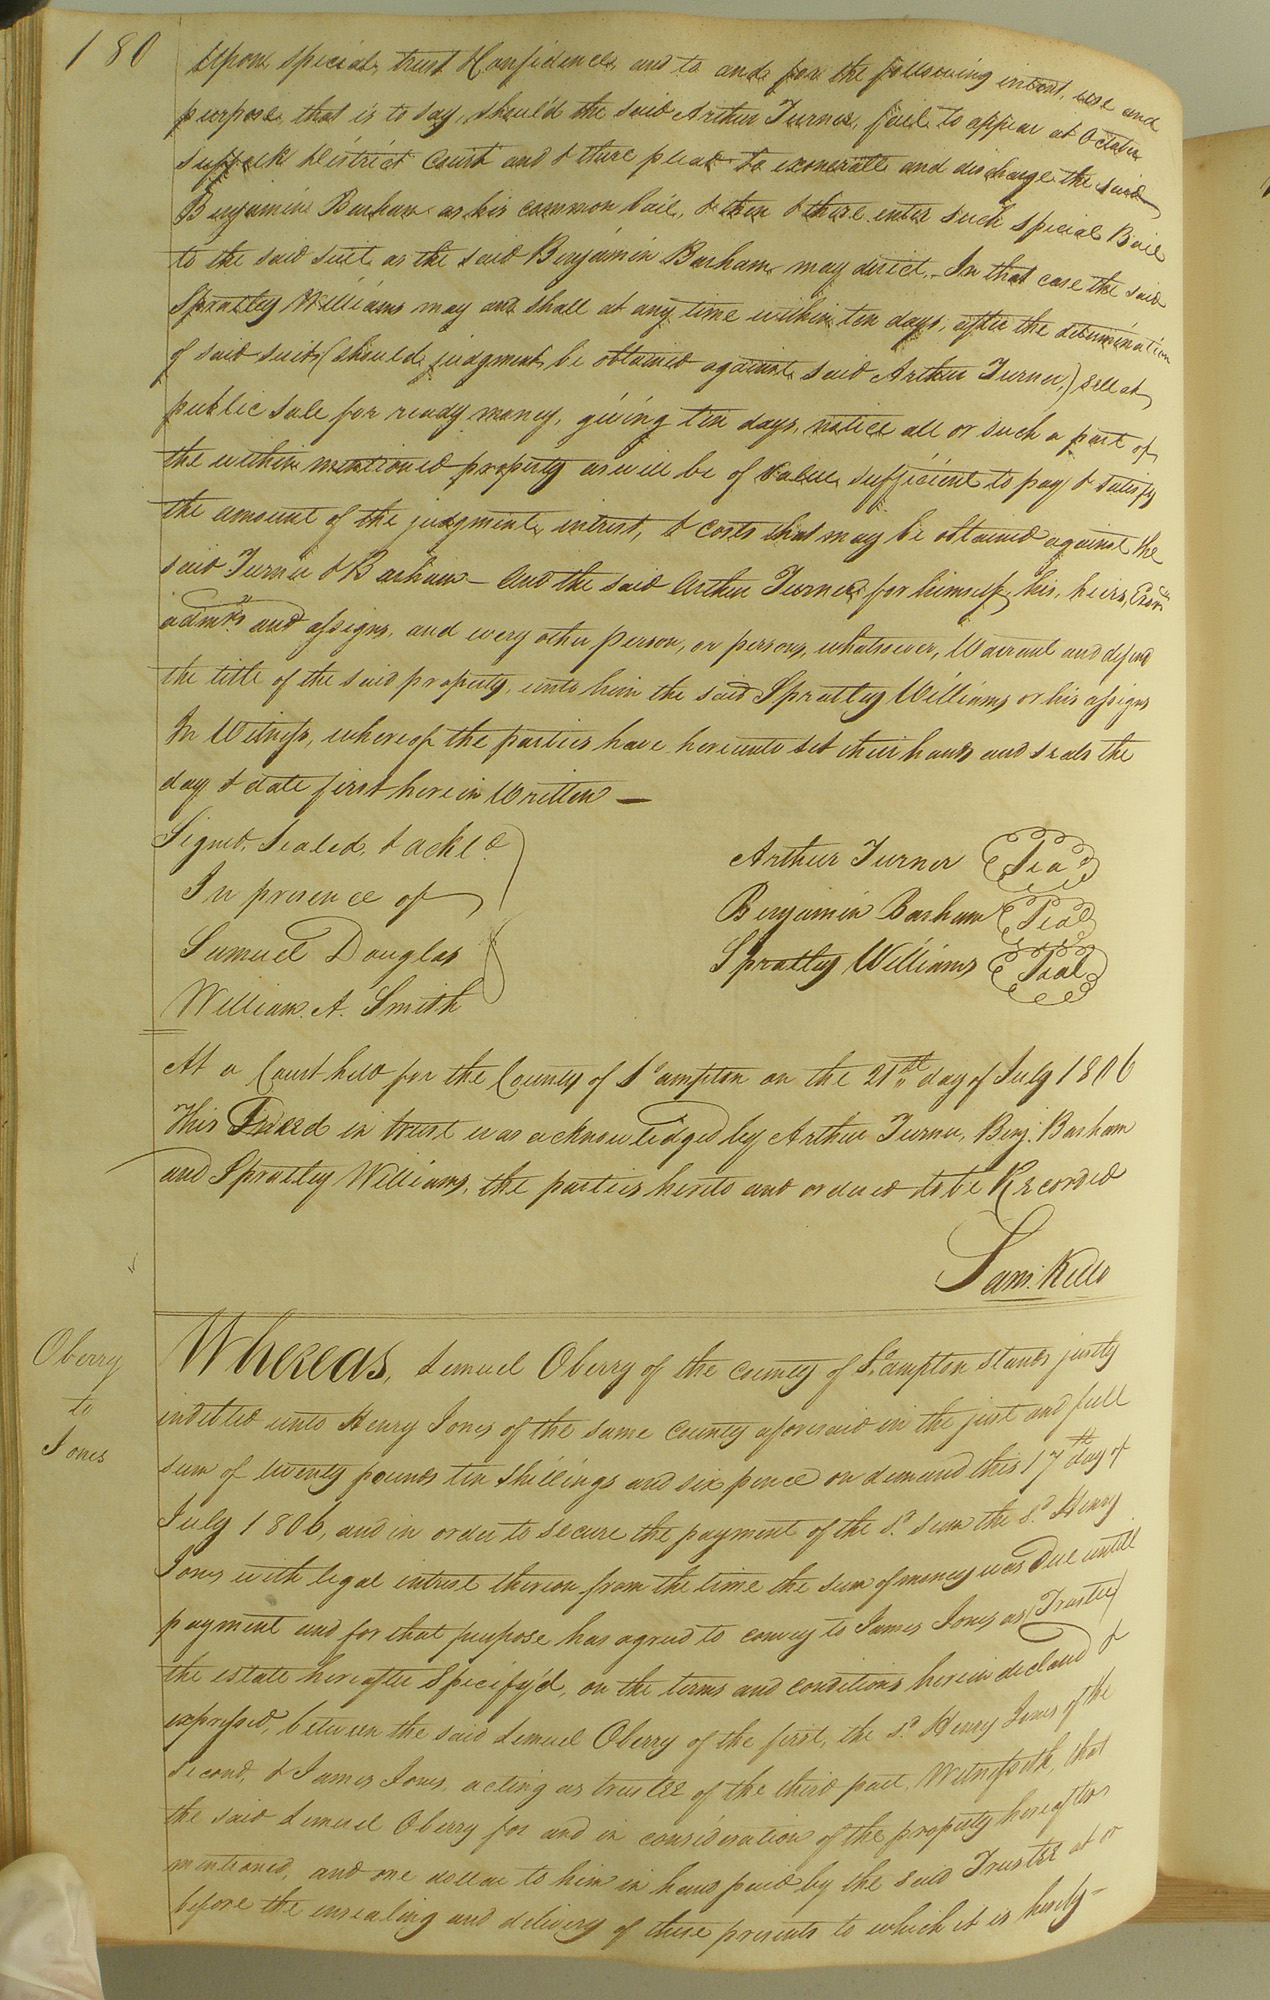 180
Upon special trust & Confidence, and to and for the following intent, use and
purpose, that is to say, should the said Arthur Turner, fail to appear at October
Suffolk District Court and & there plead to exonerate and discharge the said
Benjamin Barham as his common bail, & then & there enter such special Bail
to the said suit as the said Benjamin Barham may direct,- In that case the said
Spratley Williams may and shall at any time within ten days, after the determination
of said suit, (should judgment be obtained against said Arthur Turner,) sell at
public sale for ready money, giving ten days, notice all or such a part of
the within mentioned property as will be of value sufficient to pay & satisfy
the amount of the judgment, intrest, & costs that may be obtained against the
said Turner & Barham - And the said Arthur Turner for himself, his, heirs, Exors
admrs. and assigns, and every other person, or persons, whatsoever, Warrant and defend
the title of the said property, unto him the said Spratley Williams or his assigns
In Witness, whereof the parties have hereunto set their hands and seals the
day & date first herein Written —
Signed, Sealed, & ackld.
In presence of
Samuel Douglas
William. A. Smith
Arthur Turner Seal
Benjamin Barham Seal
Spratley Williams Seal
At a Court held for the County of So.ampton on the 21st day of July 1806
This Deed in trust was acknowledged by Arthur Turner, Benj. Barham
and Spratley Williams, the parties hereto and ordered to be Recorded
Sam: Kello
Oberry
to
Jones
Whereas, Lemuel Oberry of the county of So.ampton stands justly
indebted unto Henry Jones of the same County aforesaid in the just and full
sum of twenty pounds ten Shillings and six pence on demand this 17th day of
July 1806, and in order to secure the payment of the sd. sum the sd. Henry
Jones with legal intrest thereon from the time the sum of money was Due untill
payment and for that purpose has agreed to convey to James Jones as (Trustee)
the estate hereafter Specify'd, on the terms and conditions herein declared &
expressed, between the said Lemuel Oberry of the first, the sd. Henry Jones of the
Second, & James Jones, acting as trustee of the third part, Witnesseth, that
the said Lemuel Oberry for and in consideration of the property hereafter
mentioned, and one dollar to him in hand paid by the said Trustee at or
before the ensealing and delivery of these presents to which it is hereby-